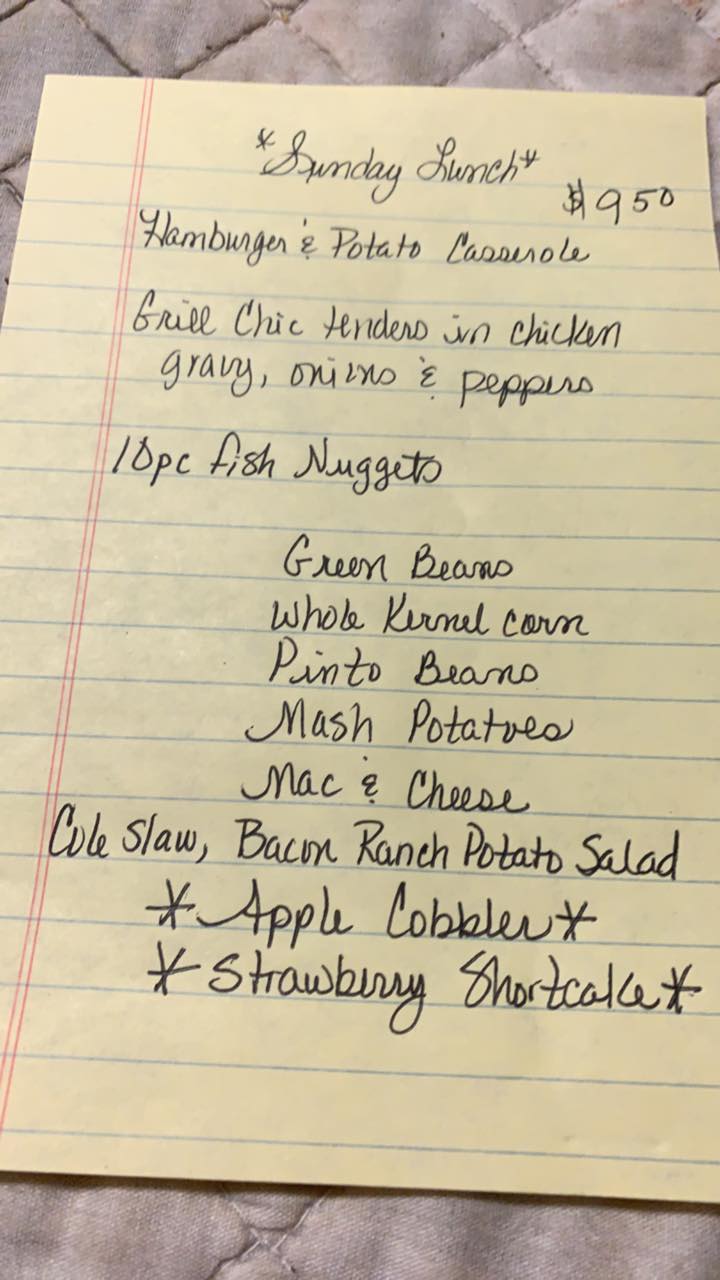 *Sunday Lunch*
$9.50
Hamburger & Potato Casserole
Grill Chic tenders in chicken
gravy, onions & peppers
10pc fish Nuggets
Green Beans
Whole Kernel corn
Pinto Beans
Mash Potatoes
Mac & Cheese
Cole Slaw, Bacon Ranch Potato Salad
*Apple Cobbler*
*Strawberry Shortcake*